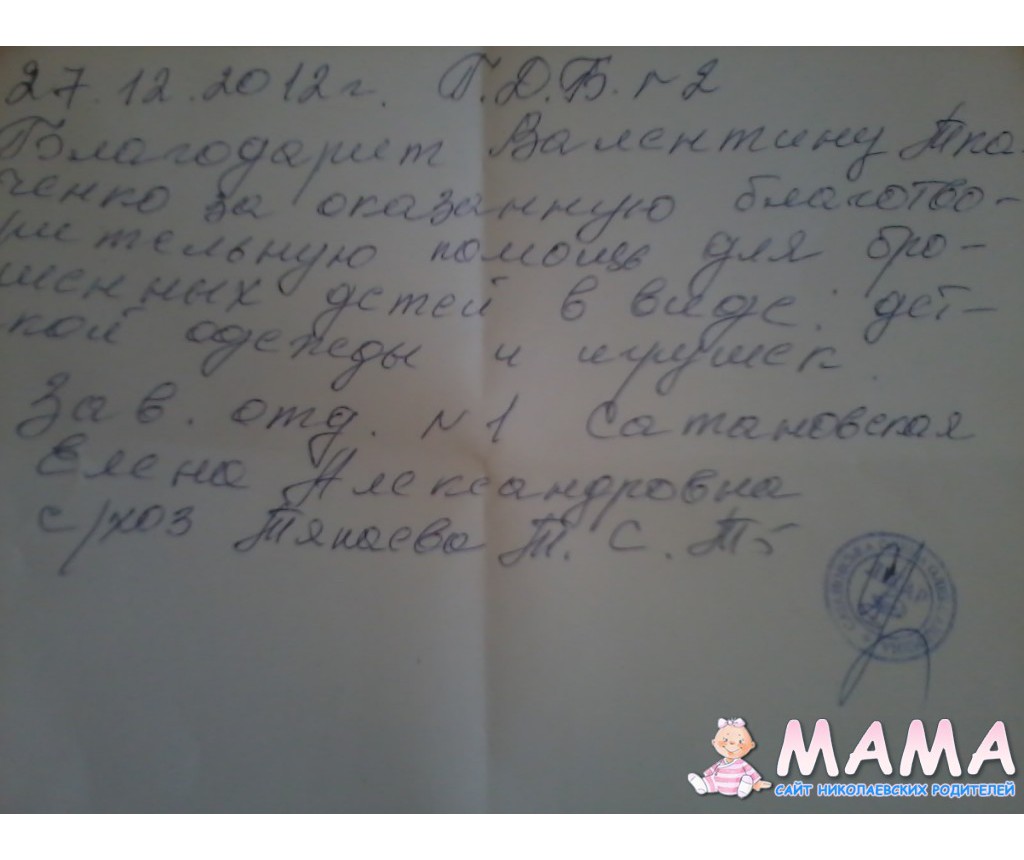 27.12.2012г. Г.Д.Б. №2
Благодарит Валентину Тка-
ченко за оказанную благотво-
рительную помощь для бро-
шенных детей в виде: дет-
кой одежды и игрушек.
Зав. отд. №1 Сатановская
Елена Александровна
с/хоз Тякаева Т. С.
МАМА
САЙТ НИКОЛАЕВСКИХ РОДИТЕЛЕЙ